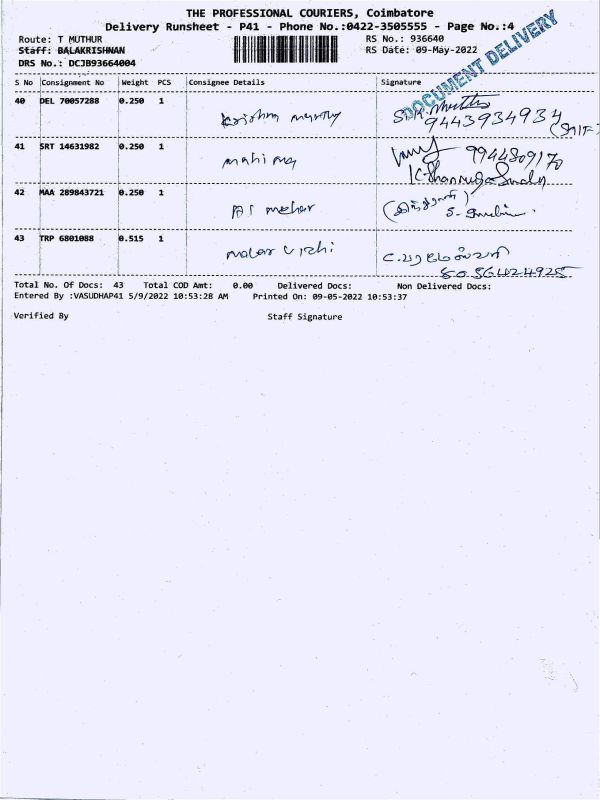 THE PROFESSIONAL COURIERS, Coimbatore
Delivery Runsheet - P41 - Phone No.:0422-3505555 - Page No.:4
Route: T MUTHUR RS No.: 936640
Staff: BALAKRISHNAN RS Date: 09-May-2022
DRS No.: DCJB93664004
DOCUMENT DELIVERY
S No Consignment No Weight PCS Consignee Details Signature
40 DEL 70057288 0.250 1
Krishna murthy 9443934934
41 SRT 14631982 0.250 1
mahima 9944809170
K. Shanmuga Sundar
42 MAA 289843721 0.250 1
43 TRP 6801088 0.515 1
malar
Total No. Of Docs: 43 Total COD Amt: 0.00 Delivered Docs: Non Delivered Docs:
Entered By :VASUDHAP41 5/9/2022 10:53:28 AM Printed On: 09-05-2022 10:53:37
Verified By Staff Signature